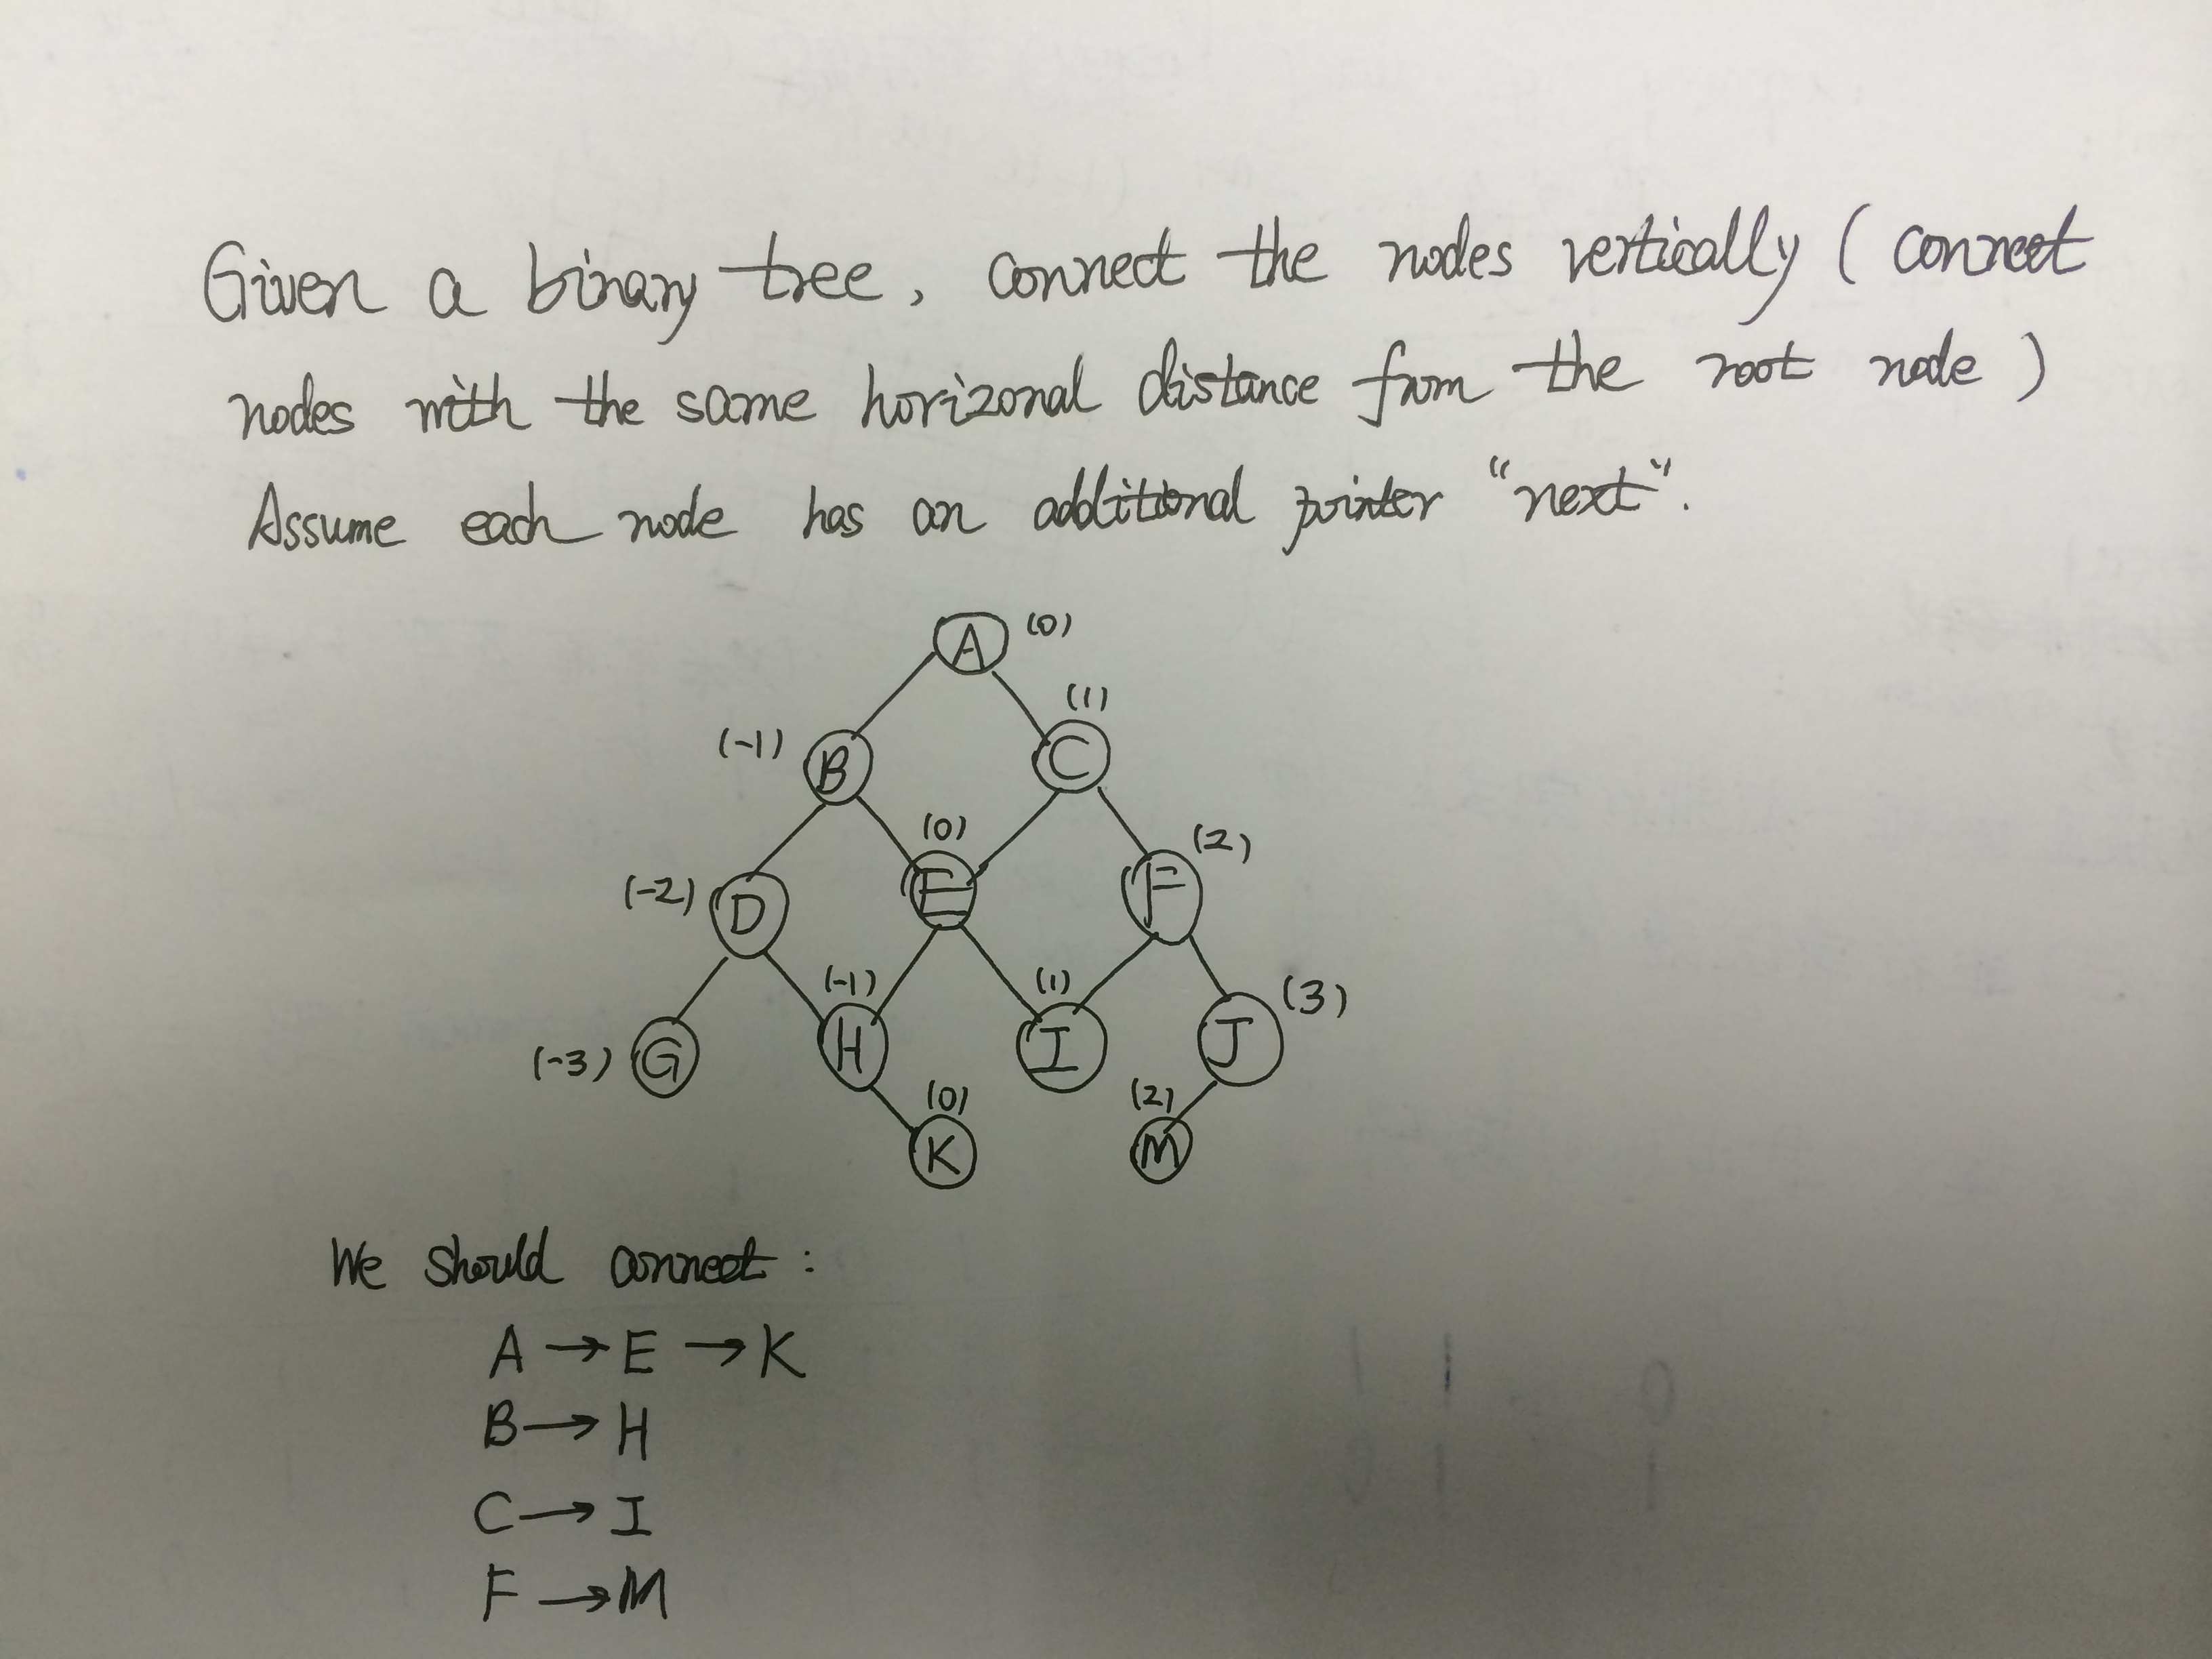 Given a binary tree, connect the nodes vertically (connect
nodes with the same horizonal distance from the root node)
Assume each node has an additional pointer "next".
A (0)
(-1) B C (1)
(-2) D E (0) F (2)
(-3) G H (-1) I (1) J (3)
K (0) M (2)
We should connect:
A → E → K
B → H
C → I
F → M